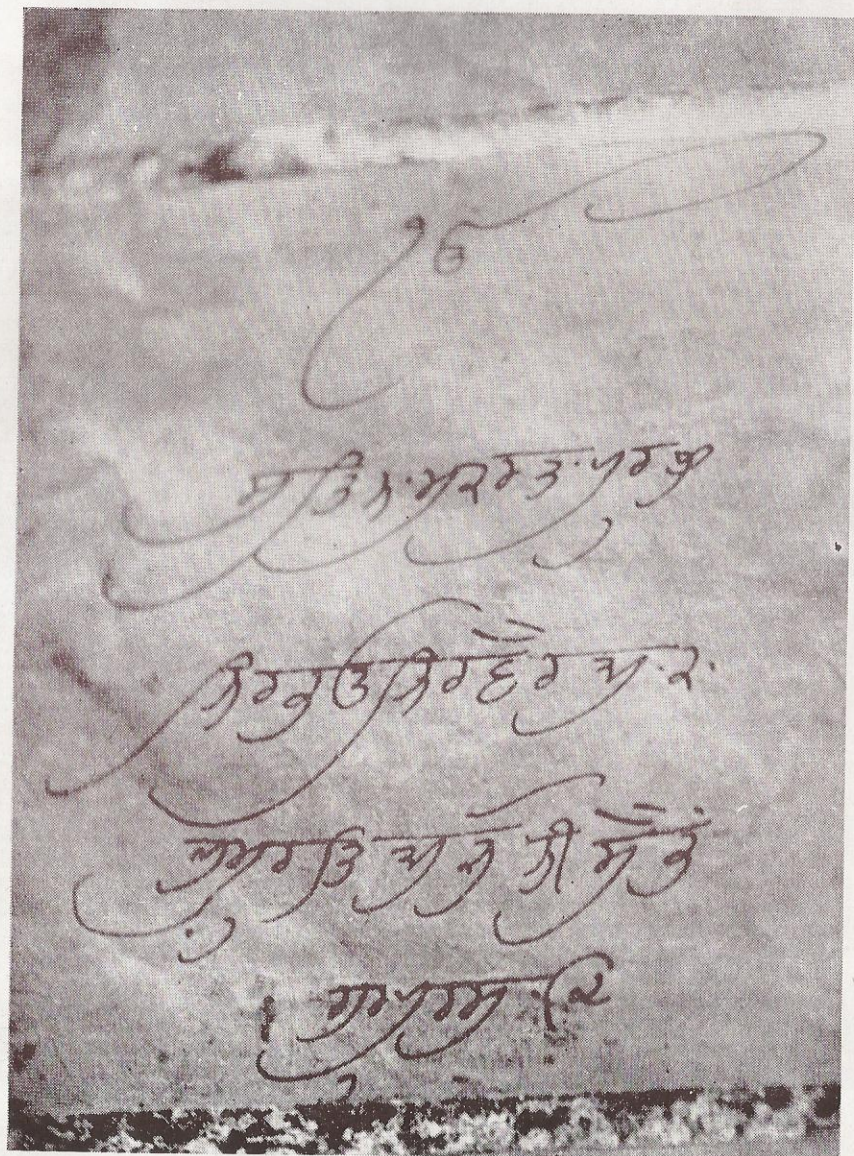 ੴ
ਸਤਿਨਾਮੁ ਕਰਤਾ ਪੁਰਖੁ
ਨਿਰਭਉ ਨਿਰਵੈਰ ਅਕਾ
ਲ ਮੂਰਤਿ ਅਜੂਨੀ ਸੈਭੰ
ਗੁਰਪ੍ਰਸਾਦਿ